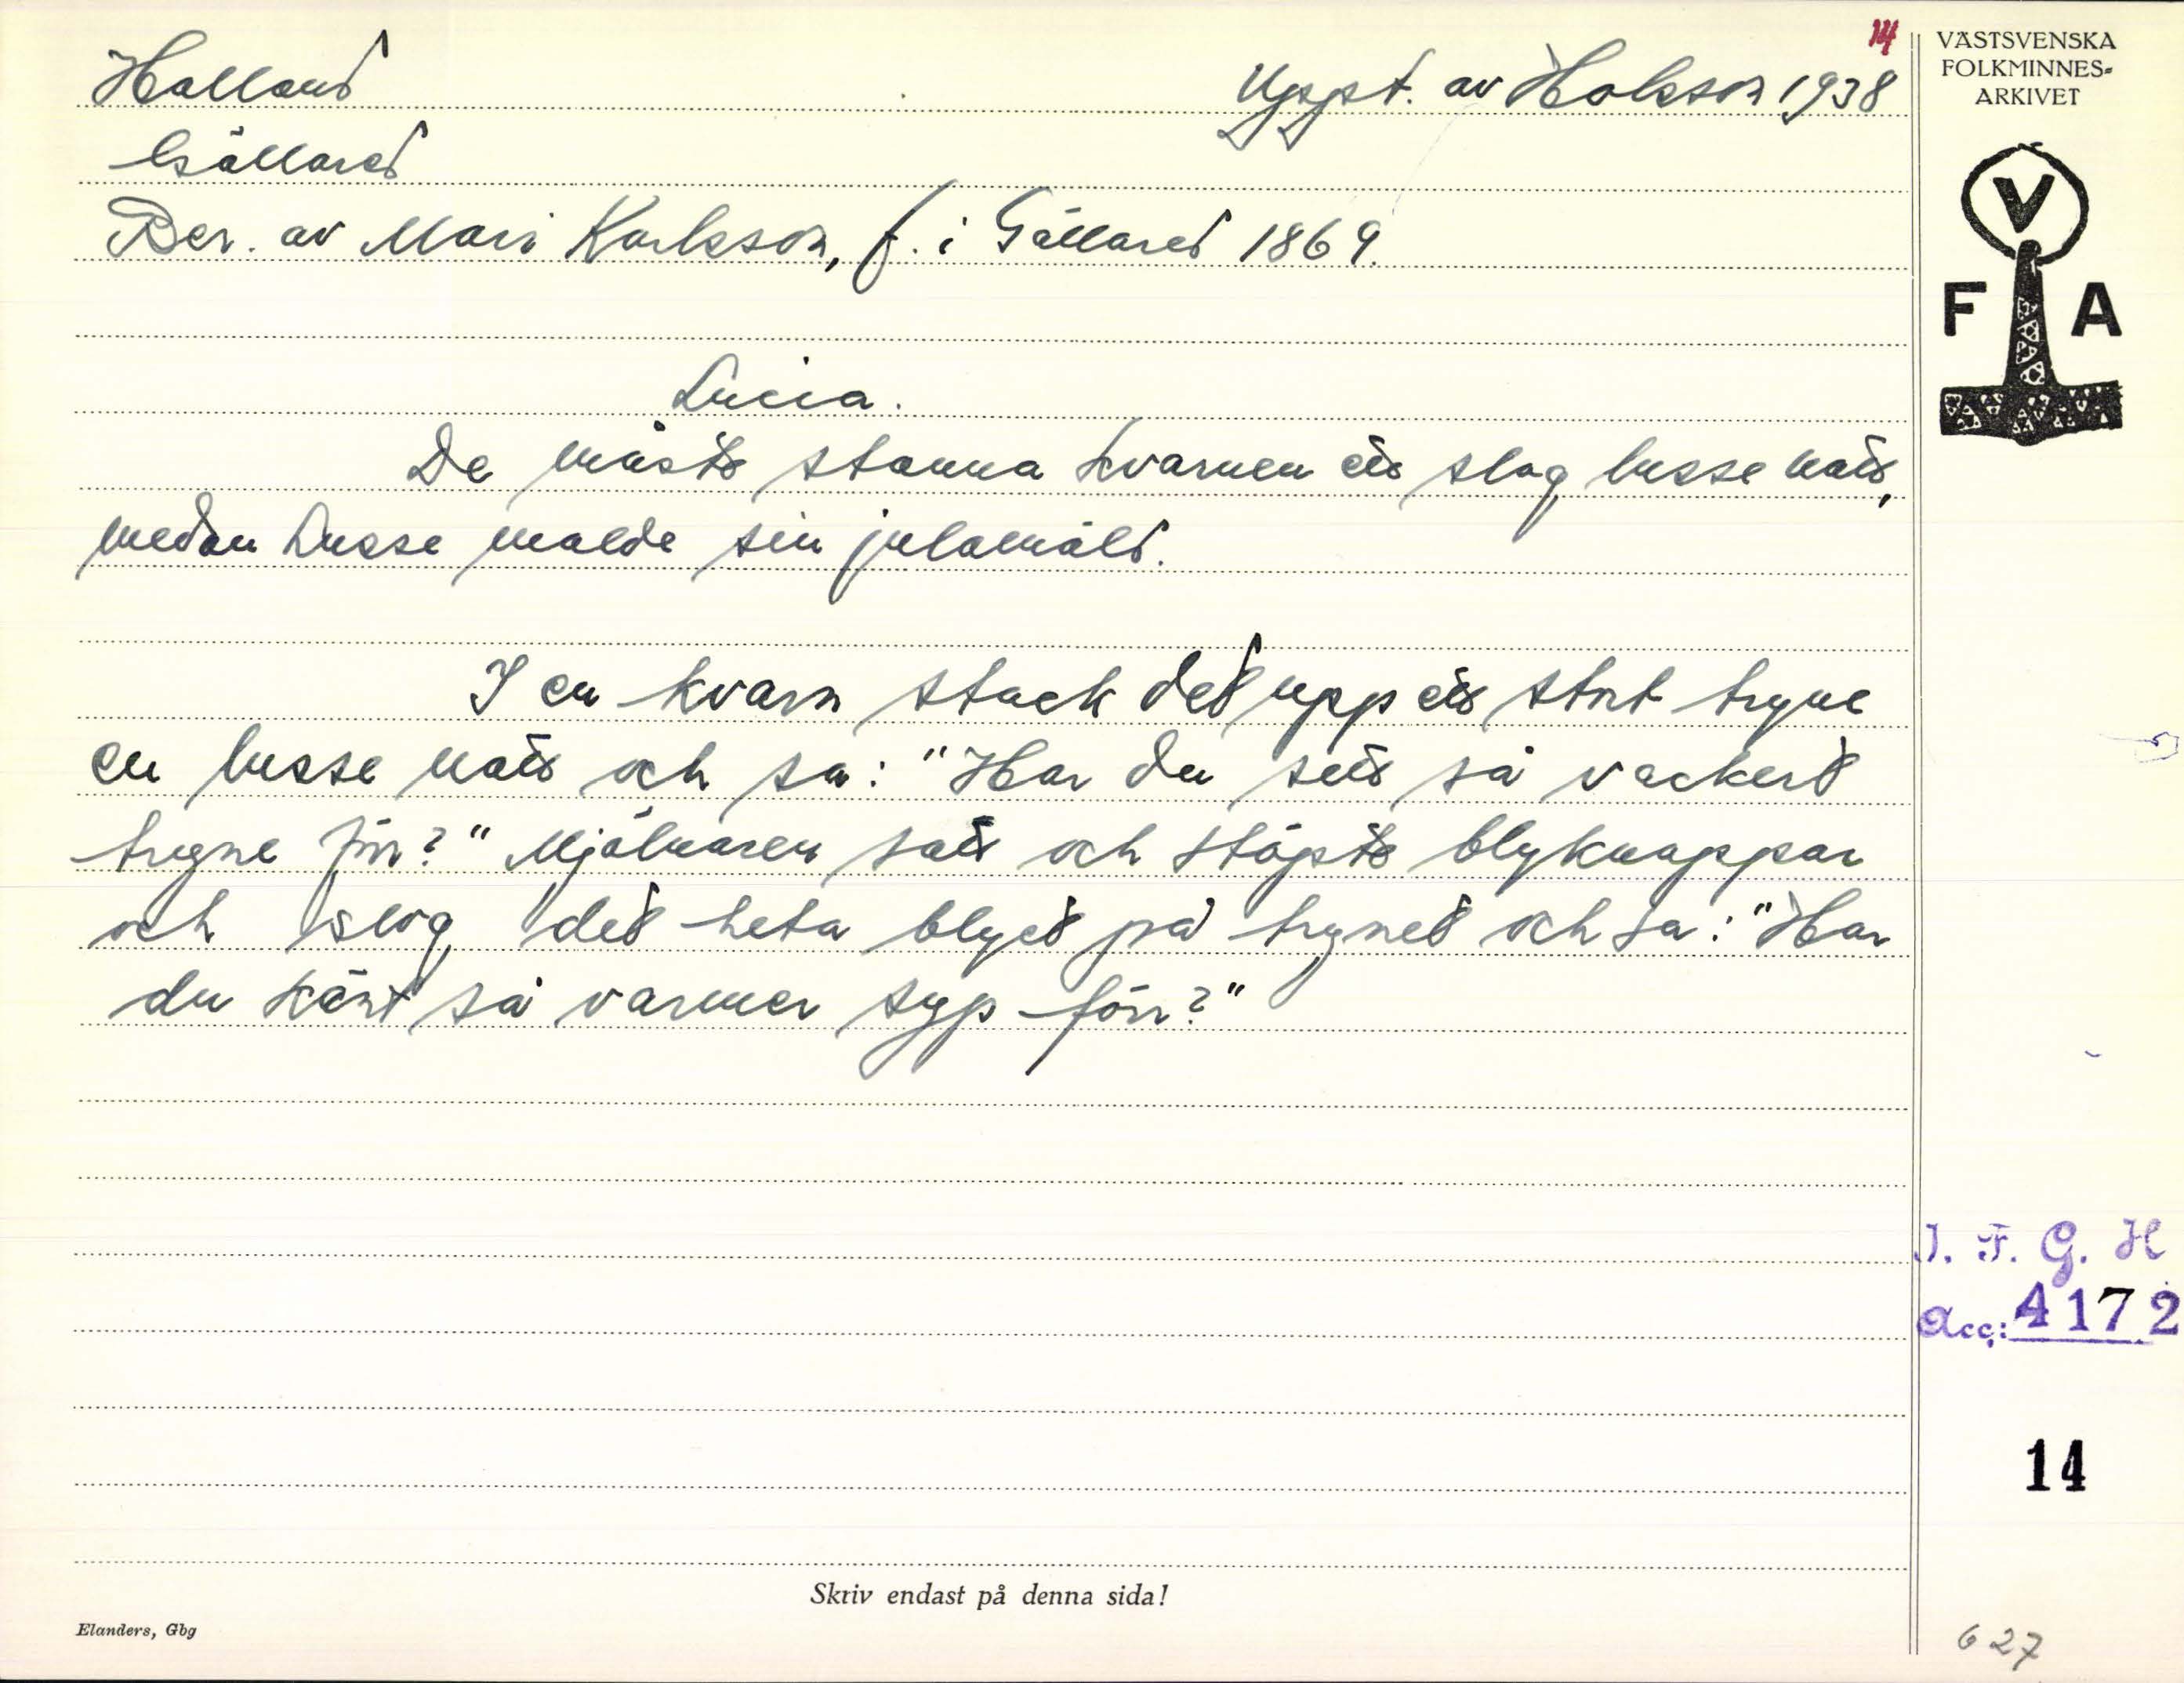 14
Halland Uppt. av Holsson 1938
Gällared
Ber. av Mari Karlsson, f. i Gällared 1869.
Lucia.
De måste stanna kvarnen ett slag lusse natt,
medan Lusse malde sin julamäld.
I en kvarn stack det upp ett stort tryne
en lusse natt och sa: "Har du sett så vackert
tryne förr?" Mjölnaren satt och stöpte blyknappar
och slog det heta blyet på trynet och sa: "Har
du känt så varmer syp förr?"
Skriv endast på denna sida!
Elanders, Gbg
VÄSTSVENSKA
FOLKMINNES-
ARKIVET
V
F A
I. F. G. H
Acc: 4172
14
627